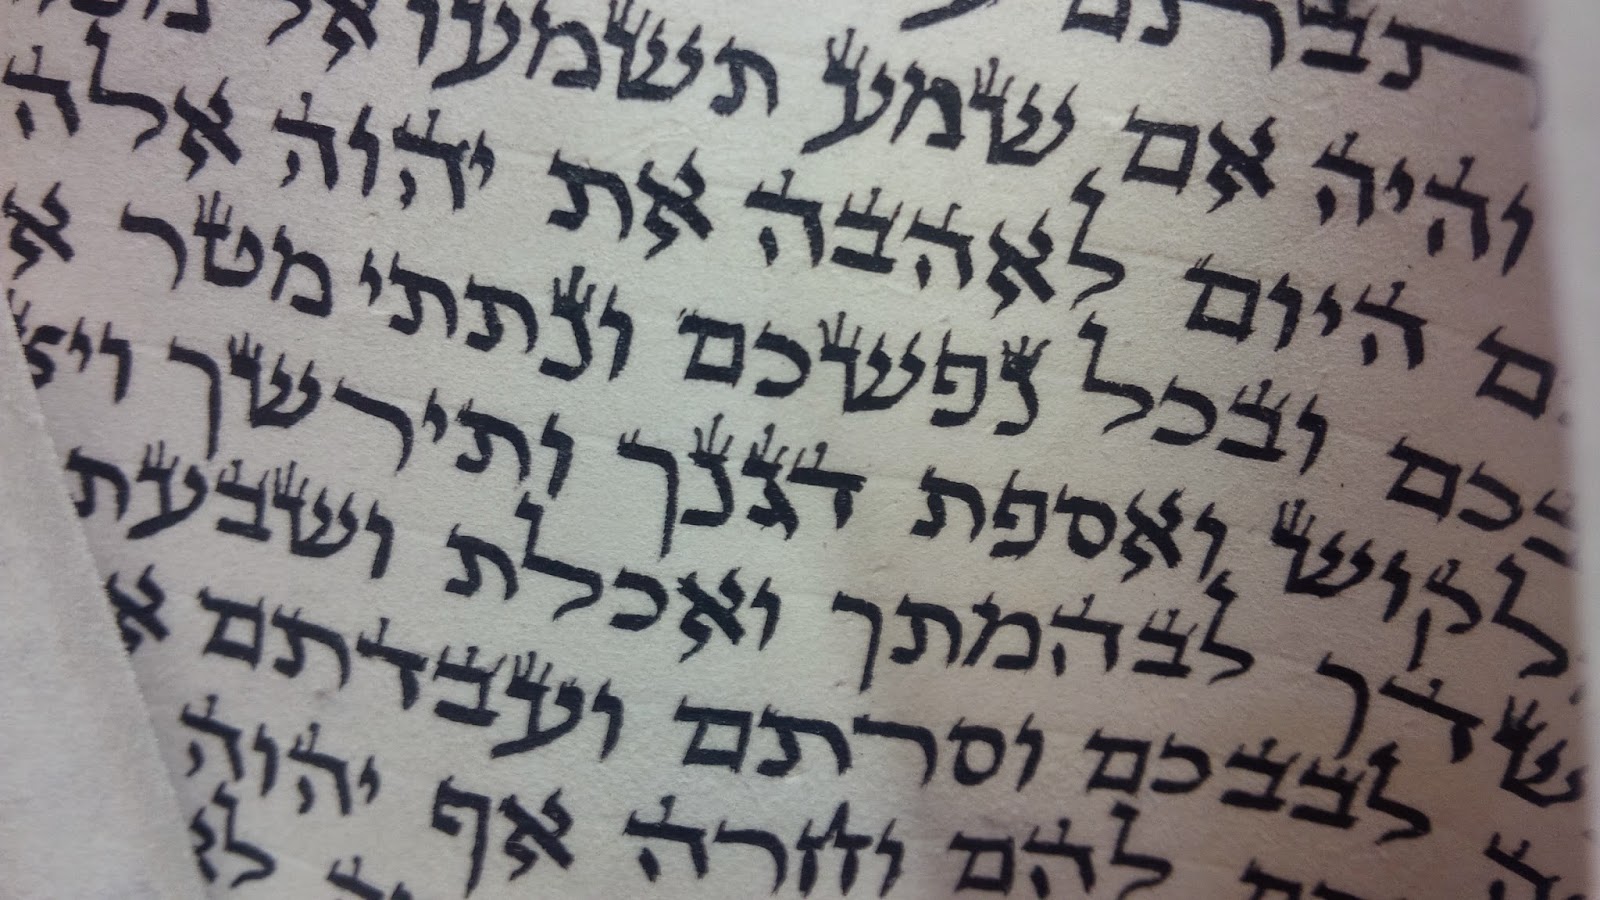 והיה אם שמע תשמעו אל
ם היום לאהבה את יהוה אלה
בכם ובכל נפשכם ונתתי מטר א
לקוש ואספת דגנך ותירשך ויצ
שדך לבהמתך ואכלת ושבעת
לבבכם וסרתם ועבדתם א
להם וחרה אף יהוה